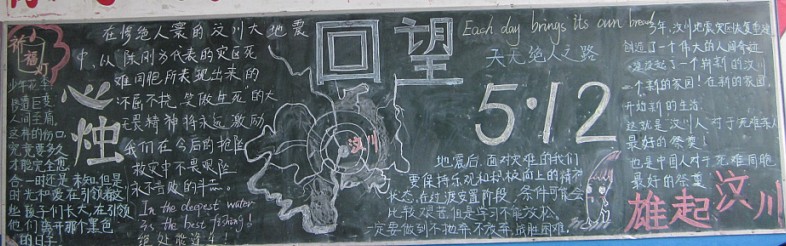 祈福
灯
少年花季
惨遭巨变
人间至痛
这样的伤口
究竟要多久
才能完全愈
合一时还是未知,但是
时光和爱在引领着这
些孩子们长大,在引领
他们离开那个黑色
的日子
心烛
在惨绝人寰的汶川大地震
中,以"陈刚"为代表的灾区死
难同胞所表现出来的
"不屈不挠,笑傲生死"的大
无畏精神将永远激励
我们在今后的抢险
救灾中不畏艰险
永不言败的斗
In the deepest water
is the best fishing!
绝处逢生!
回望
汶川
Each day brings its own bread
天无绝人之路
5·12
地震后,面对灾难的我们
要保持乐观和积极向上的精神
状态,在过渡安置阶段,条件可能会
比较艰苦,但是学习不能放松,
一定要做到不抛弃、不放弃,战胜困难。
年,汶川地震灾区恢复重建
创造了一个伟大的人间奇迹
建设起了一个崭新的汶
一个新的家园!在新的家园,
开始新的生活
这就是汶川人对于死难亲人
最好的祭奠!
也是中国人对于死难同胞
最好的祭奠
雄起汶川